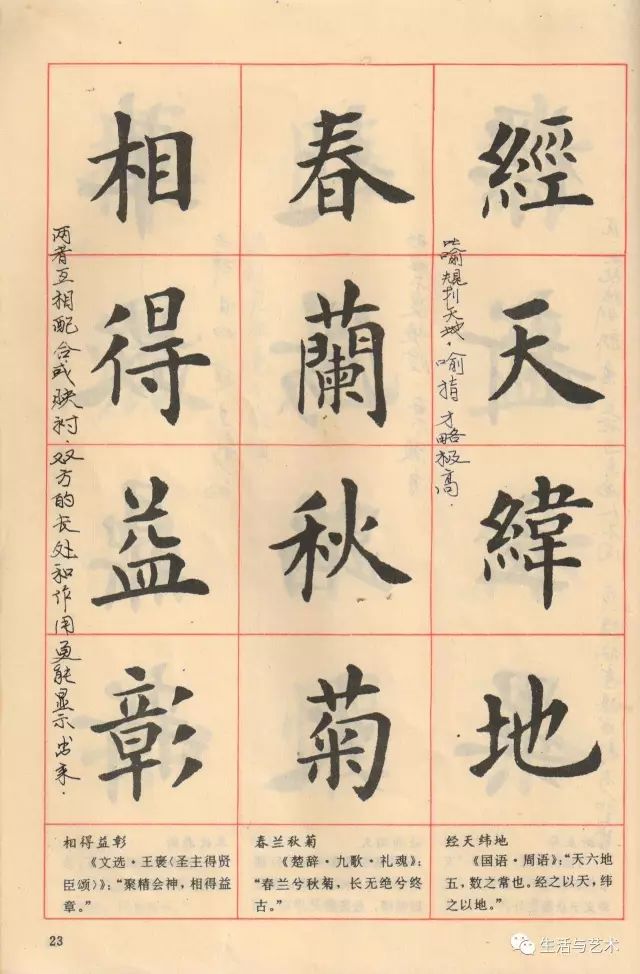 經天緯地
比喻规划天地.喻指才略极高.
春蘭秋菊
相得益彰
两者互相配合或映衬.双方的长处和作用更能显示出来.
经天纬地
《国语·周语》:“天六地
五,数之常也。经之以天,纬
之以地。”
春兰秋菊
《楚辞·九歌·礼魂》:
“春兰兮秋菊,长无绝兮终
古。”
相得益彰
《文选·王褒〈圣主得贤
臣颂〉》:“聚精会神,相得益
章。”
23
生活与艺术